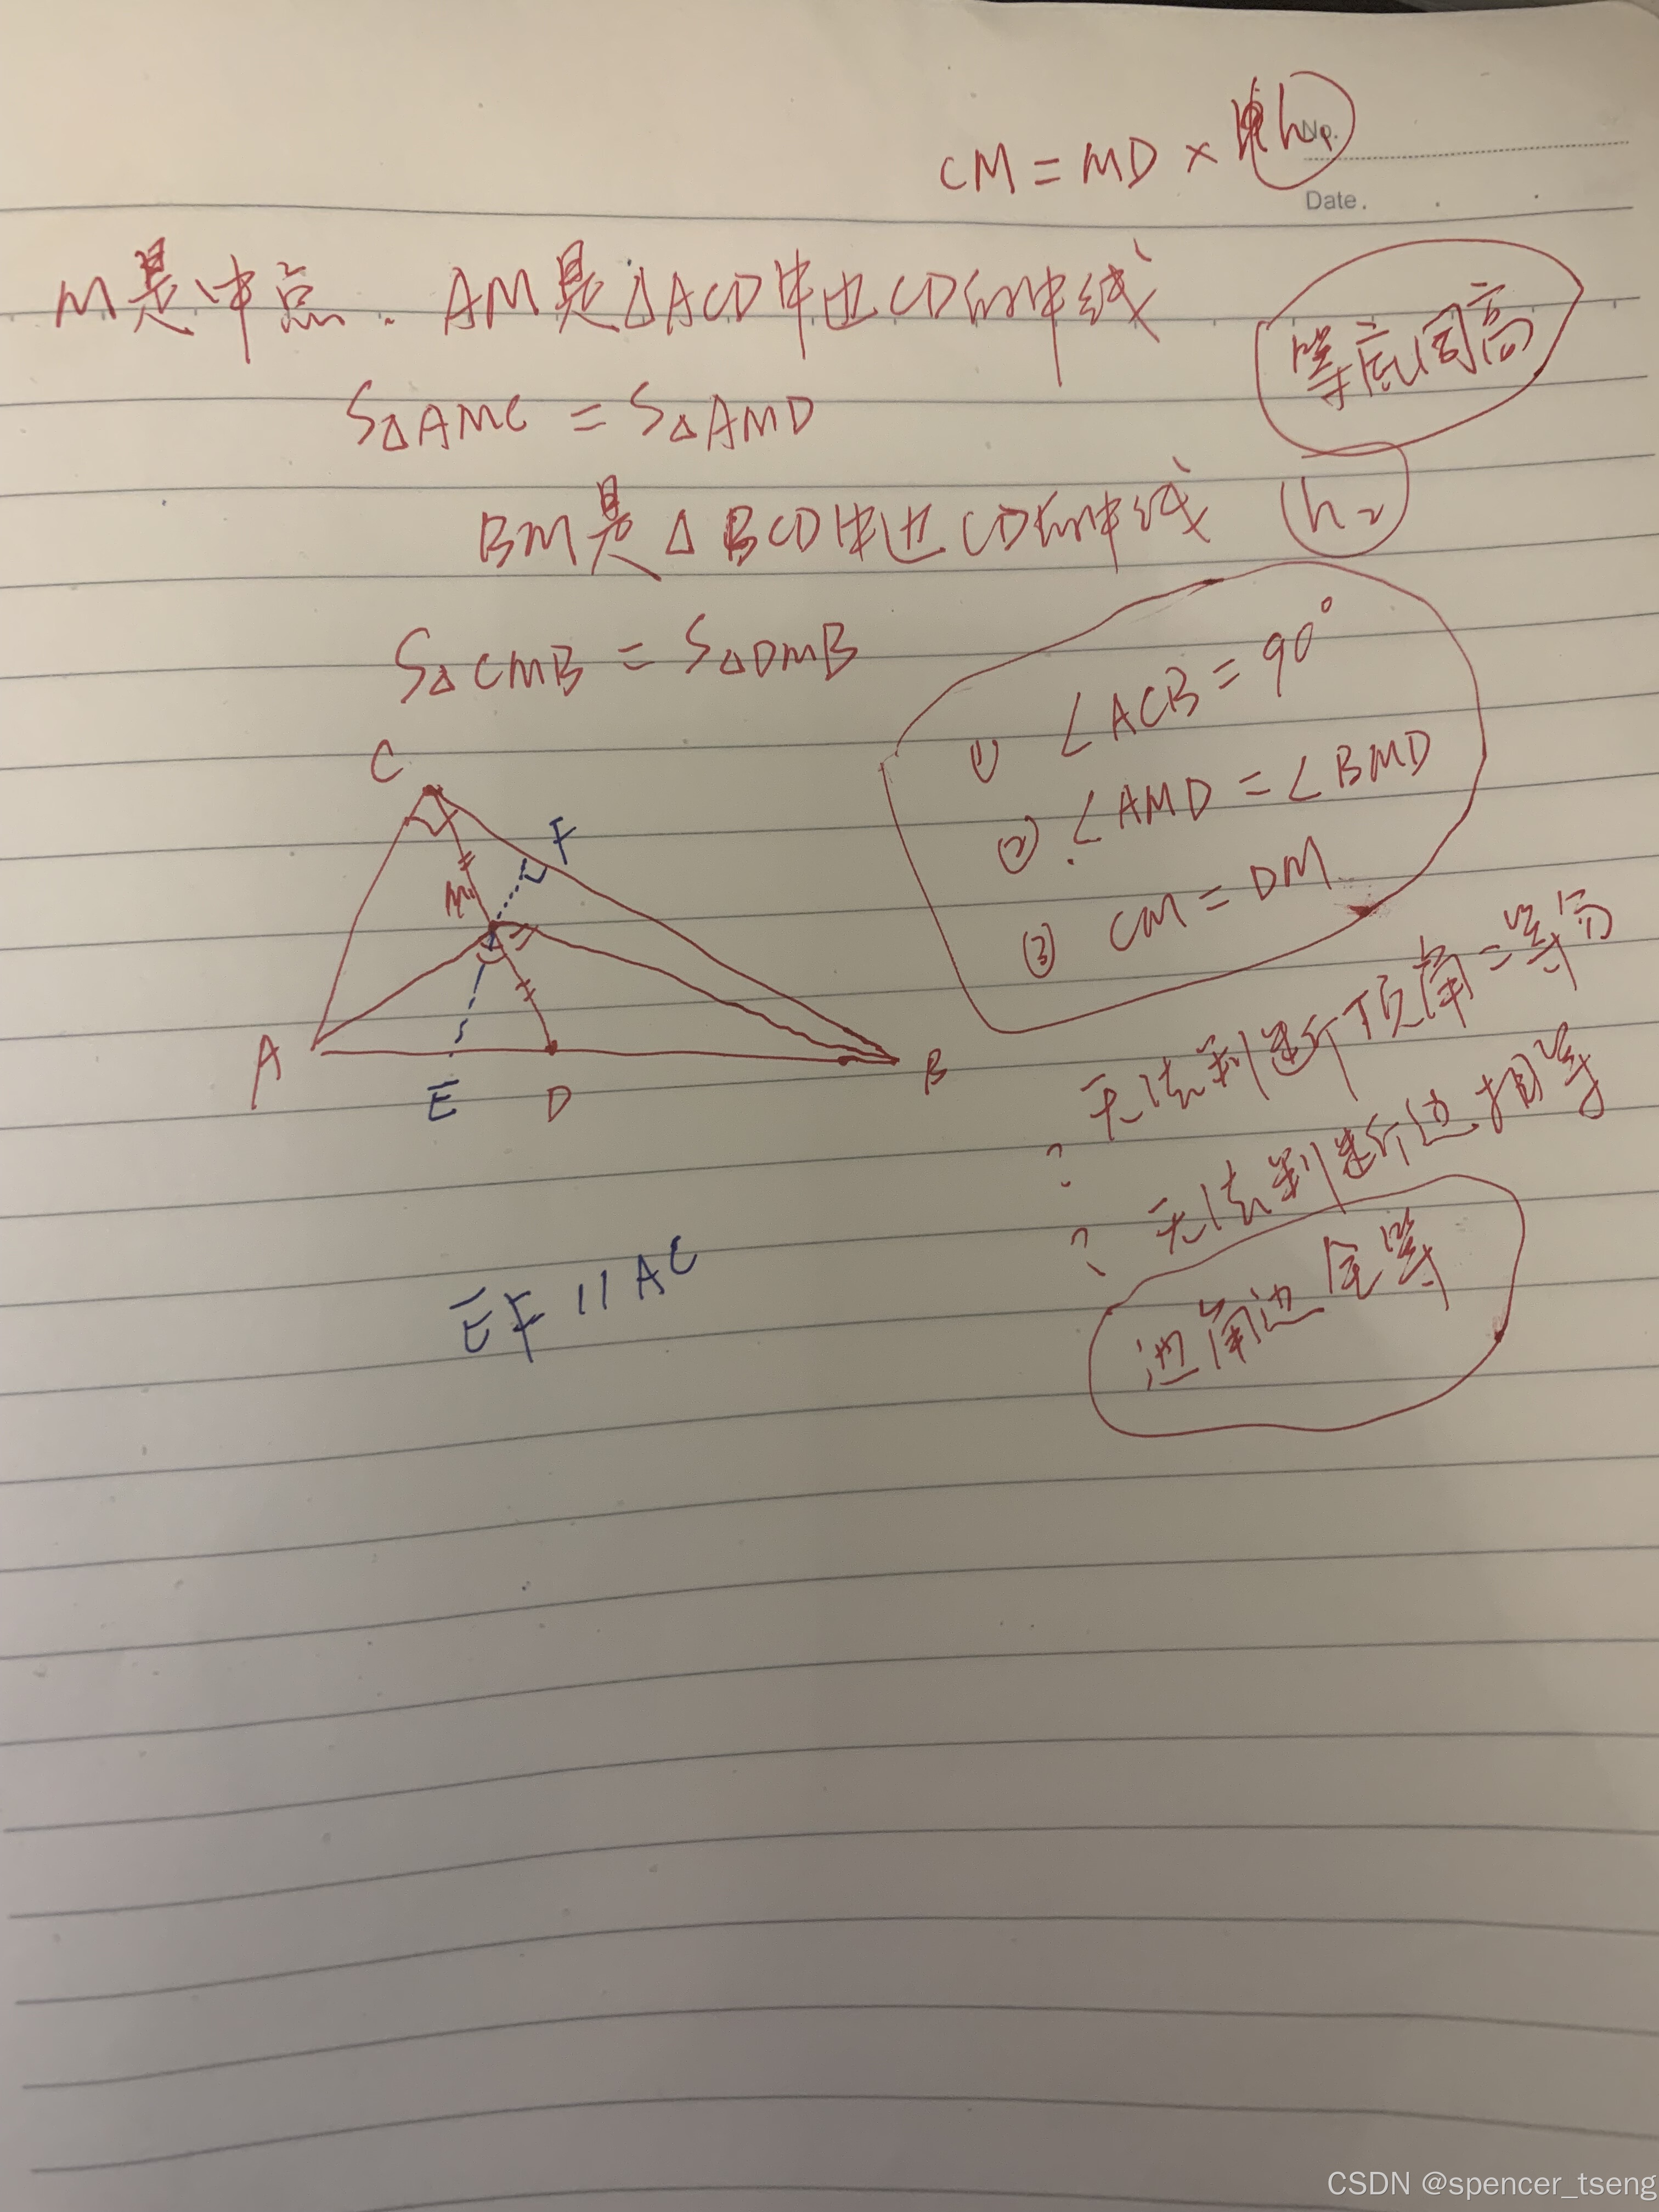 CM = MD × h
No.
Date.
M是中点. AM是△ACD中边CD的中线
等底同高
S△AMC = S△AMD
BM是△BCD中边CD的中线
h₂
S△CMB = S△DMB
① ∠ACB = 90°
② ∠AMD = ∠BMD
③ CM = DM
C
F
M
A
E
D
B
? 无法判断顶角=等分
? 无法判断边相等
边角边全等
EF // AC
CSDN @spencer_tseng